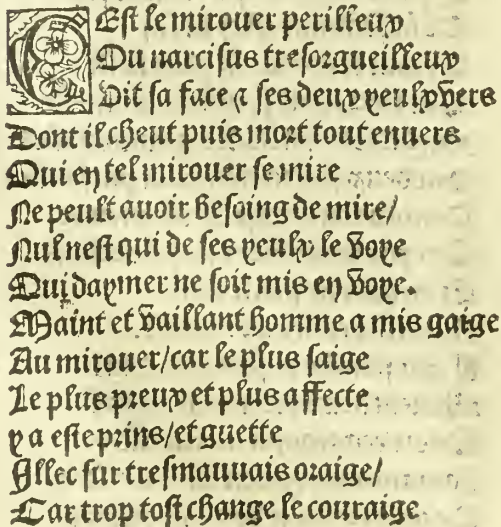 CEst le mirouer perillieux
Ou narcisus tresorgueilleux
Vit sa face ⁊ ses deux yeulx vers
Dont il cheut puis mort tout enuers
Qui en tel mirouer se mire
Ne peult auoir besoing de mire/
Nul nest qui de ses yeulx le voye
Qui daymer ne soit mis en voye.
Maint et vaillant homme a mis gaige
Au mirouer/car le plus saige
Le plus preux et plus affecte
y a este prins/et guette
Illec sur tresmauuais oraige/
Car trop tost change le couraige